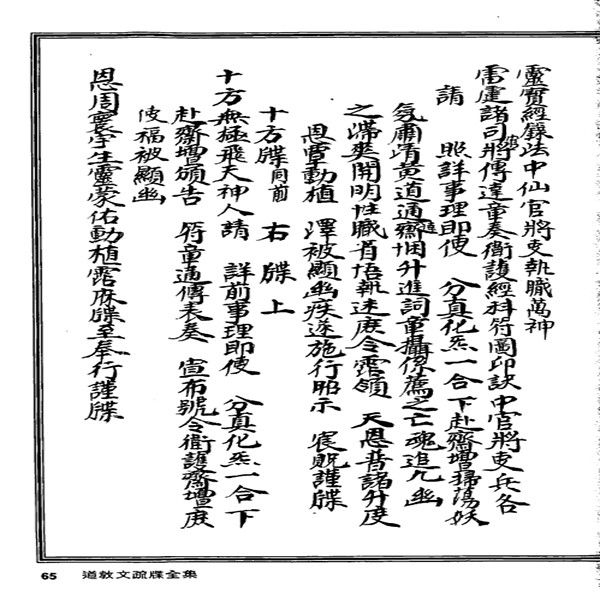 靈寶經籙法中仙官將吏執職萬神
雷霆諸司將傳達章奏衛護經科符圖印訣中官將吏兵各
請　照詳事理即使　分真化炁一合下赴齋壇掃蕩妖
氛肅清黃道通齋悃升進詞章攝係薦之亡魂追九幽
之滯爽開明性職首悟執迷庶令霑領　天恩普諸升度
恩覃動植　澤被顯幽疾逐施行昭示　宸貺謹牒
十方牒同前　右　牒　上
十方無極飛天神人請　詳前事理即使　分真化炁一合下
赴齋壇頒告　符章通傳表奏　宣布號令衛護齋壇庶
俊福被顯幽
恩周寰宇生靈蒙佑動植霑庥牒至奉行謹牒
65 道教文疏牒全集